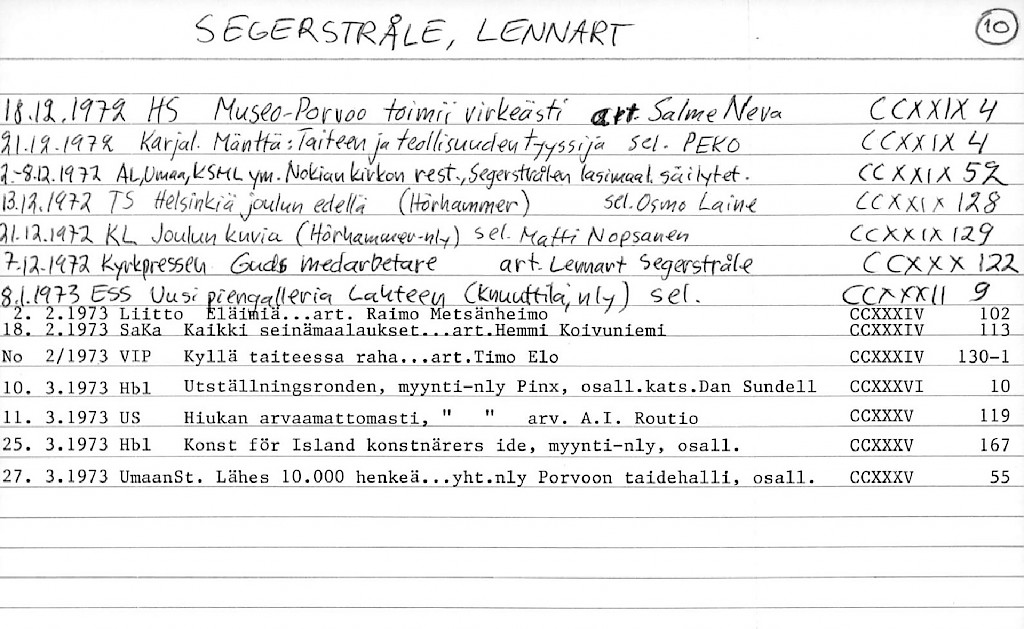 SEGERSTRÅLE, LENNART 10
18.12.1972 HS Museo-Porvoo toimii virkeästi art. Salme Neva CCXXIX 4
21.12.1972 Karjal. Mänttä: Taiteen ja teollisuuden tyyssija sel. PEKO CCXXIX 4
2.-8.12.1972 AL, Umaa, KSML ym. Nokian kirkon rest., Segerstrålen lasimaal. säilytet. CCXXIX 52
13.12.1972 TS Helsinkiä joulun edellä (Hörhammer) sel. Osmo Laine CCXXIX 128
21.12.1972 KL Joulun kuvia (Hörhammer-nly) sel. Matti Nopsanen CCXXIX 129
7.12.1972 Kyrkpressen Guds medarbetare art. Lennart Segerstråle CCXXX 122
8.1.1973 ESS Uusi piengalleria Lahteen (Knuuttila, nly) sel. CCXXXII 9
2. 2.1973 Liitto Eläimiä...art. Raimo Metsänheimo CCXXXIV 102
18. 2.1973 SaKa Kaikki seinämaalaukset...art.Hemmi Koivuniemi CCXXXIV 113
No 2/1973 VIP Kyllä taiteessa raha...art.Timo Elo CCXXXIV 130-1
10. 3.1973 Hbl Utställningsronden, myynti-nly Pinx, osall.kats.Dan Sundell CCXXXVI 10
11. 3.1973 US Hiukan arvaamattomasti, " " arv. A.I. Routio CCXXXV 119
25. 3.1973 Hbl Konst för Island konstnärers ide, myynti-nly, osall. CCXXXV 167
27. 3.1973 UmaanSt. Lähes 10.000 henkeä...yht.nly Porvoon taidehalli, osall. CCXXXV 55